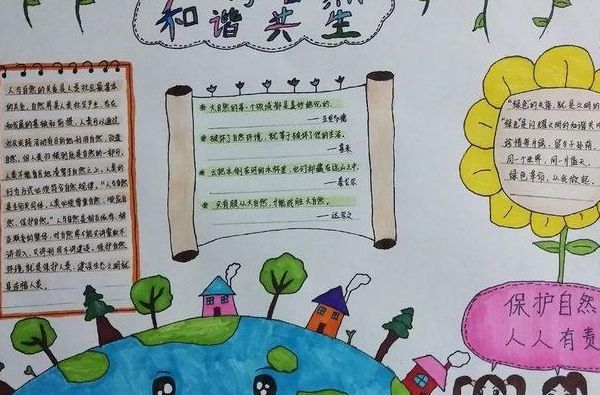 和谐共生
人与自然的关系是人类社会最基本
的关系。自然界是人类社会产生、存在
和发展的基础和前提，人类可以通过
社会实践活动有目的地利用自然、改造
自然，但人类归根到底是自然的一部分，
人类不能盲目地凌驾于自然之上，人类的
行为方式必须符合自然规律。"人与自然
是生命共同体，人类必须尊重自然、顺应自
然、保护自然。"人与自然是相互依存、相
互联系的整体，对自然界不能只讲索取不
讲投入、只讲利用不讲建设。保护自然
环境就是保护人类，建设生态文明就
是造福人类。
大自然的每一个领域都是美妙绝伦的。
——亚里士多德
破坏了自然环境，就等于破坏了您的生活。
只有服从大自然，才能战胜大自然。
——达尔文
"绿色"的火炬，就是文明的
同一个世界，同一片蓝天，
绿色享动，从我做起。
保护自然
人人有责